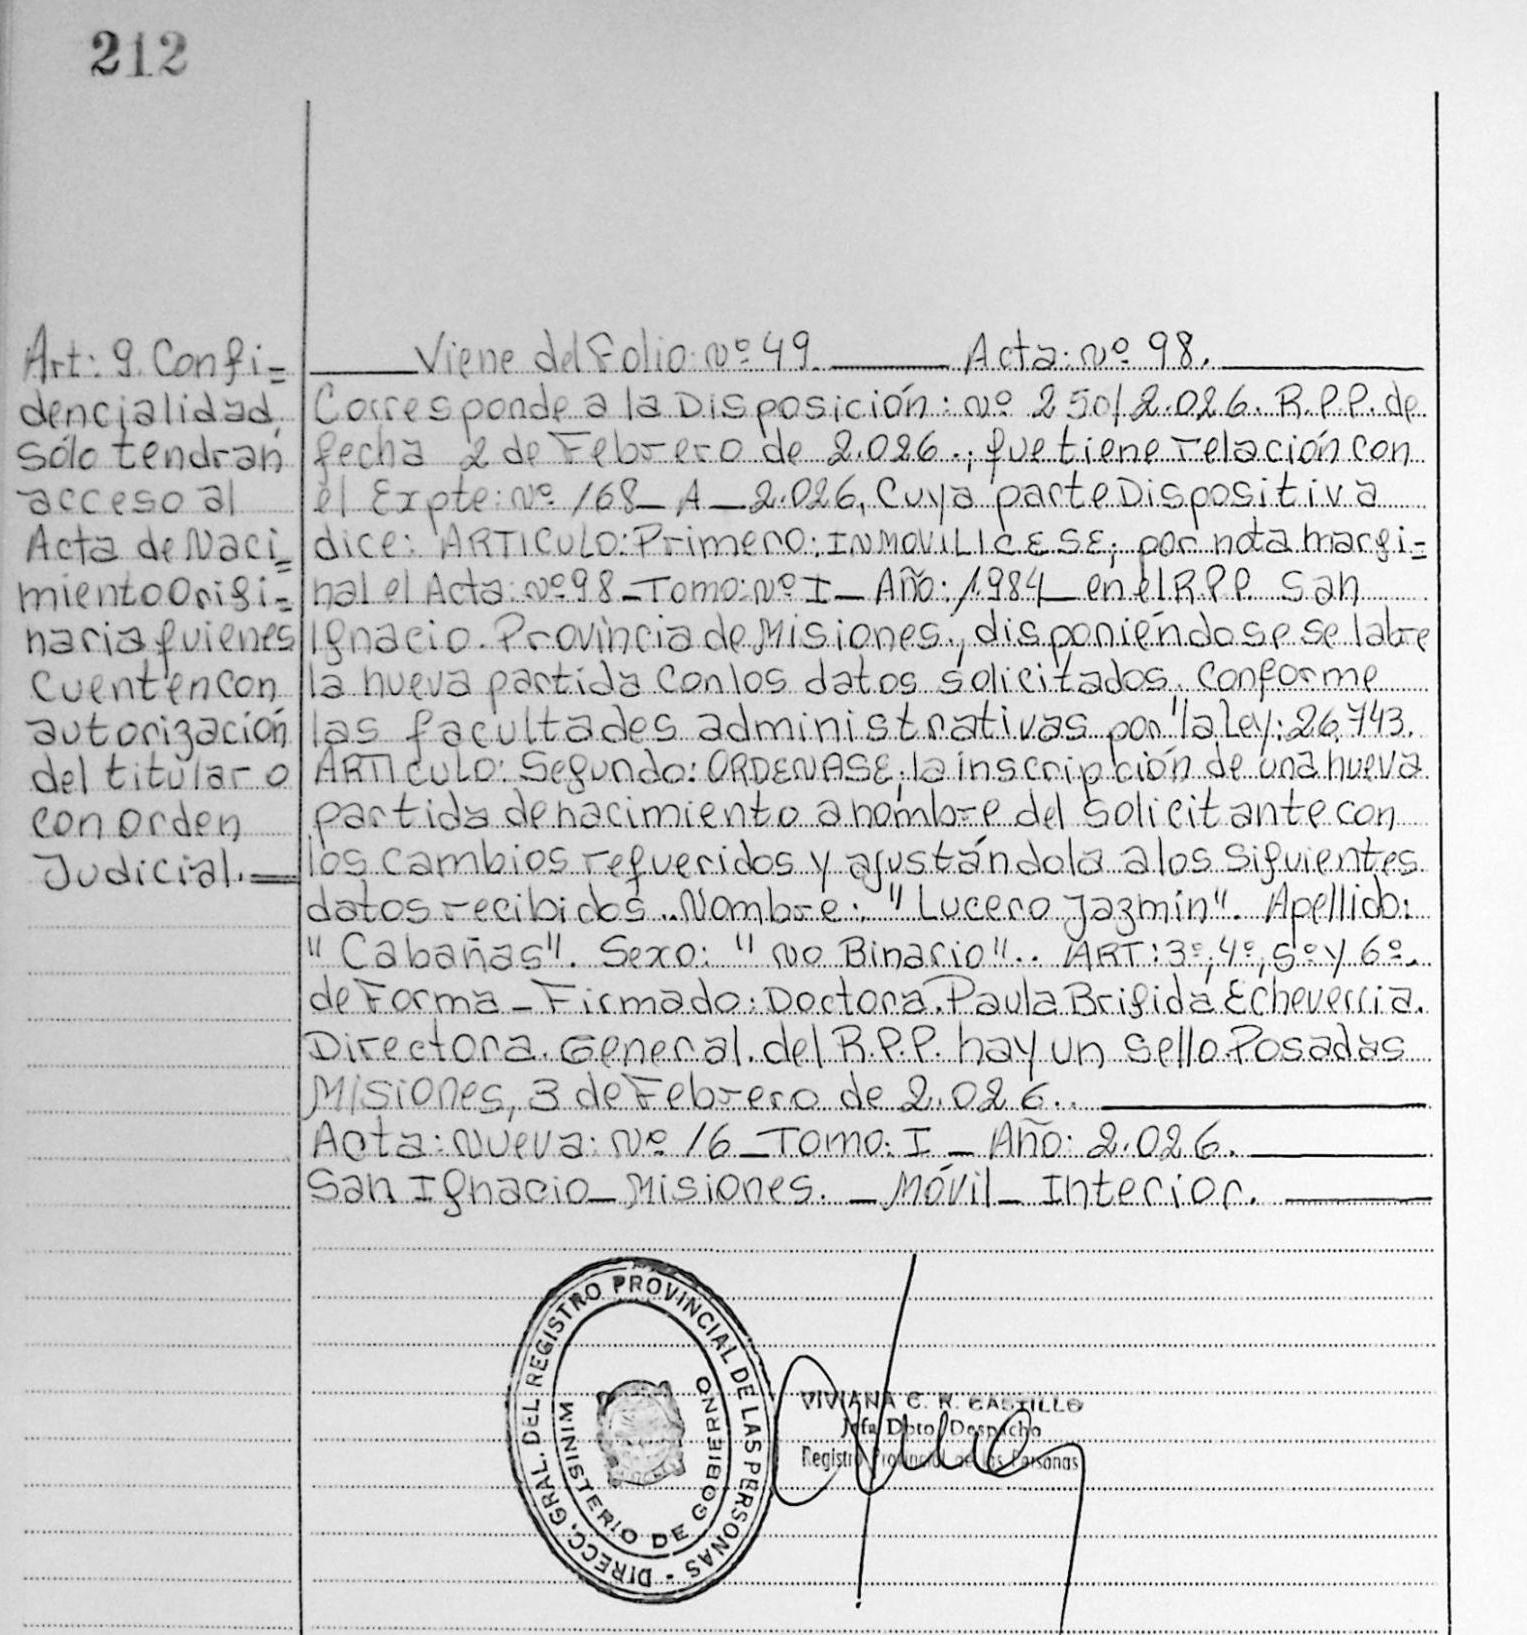 212
Art: 9. Confi=
dencialidad,
sólo tendran
acceso al
Acta de Naci=
miento Origi=
naria quienes
cuenten con
autorización
del titular o
con orden
Judicial.=
Viene del Folio: Nº 49. Acta: Nº 98.
Corresponde a la Disposición: Nº 250/2.026. R.P.P. de
fecha 2 de Febrero de 2.026.; que tiene relación con
el Expte: Nº 168_ A _ 2.026, Cuya parte Dispositiva
dice: ARTICULO: Primero: INMOVILICESE; por nota margi=
nal el Acta: Nº 98 _ Tomo: Nº I _ Año: 1984 _ en el R.P.P. San
Ignacio. Provincia de Misiones., disponiéndose se labre
la nueva partida con los datos solicitados. Conforme
las facultades administrativas por "la Ley: 26.743.
ARTICULO: Segundo: ORDENASE; la inscripción de una nueva
partida de nacimiento a nombre del solicitante con
los cambios requeridos y ajustándola a los siguientes
datos recibidos.. Nombre: "Lucero Jazmín". Apellido:
"Cabañas". Sexo: "No Binario".. ART: 3º, 4º, 5º y 6º.
de Forma _ Firmado: Doctora. Paula Brigida Echeverria.
Directora. General. del R.P.P. hay un sello. Posadas
Misiones, 3 de Febrero de 2.026..
Acta: Nueva: Nº 16 _ Tomo: I _ Año: 2.026.
San Ignacio _ Misiones. _ Móvil _ Interior.
DIRECC. GRAL. DEL REGISTRO PROVINCIAL DE LAS PERSONAS -
MINISTERIO DE GOBIERNO
VIVIANA C. R. CASTILLO
Jefa Dpto. Despacho
Registro Provincial de las Personas